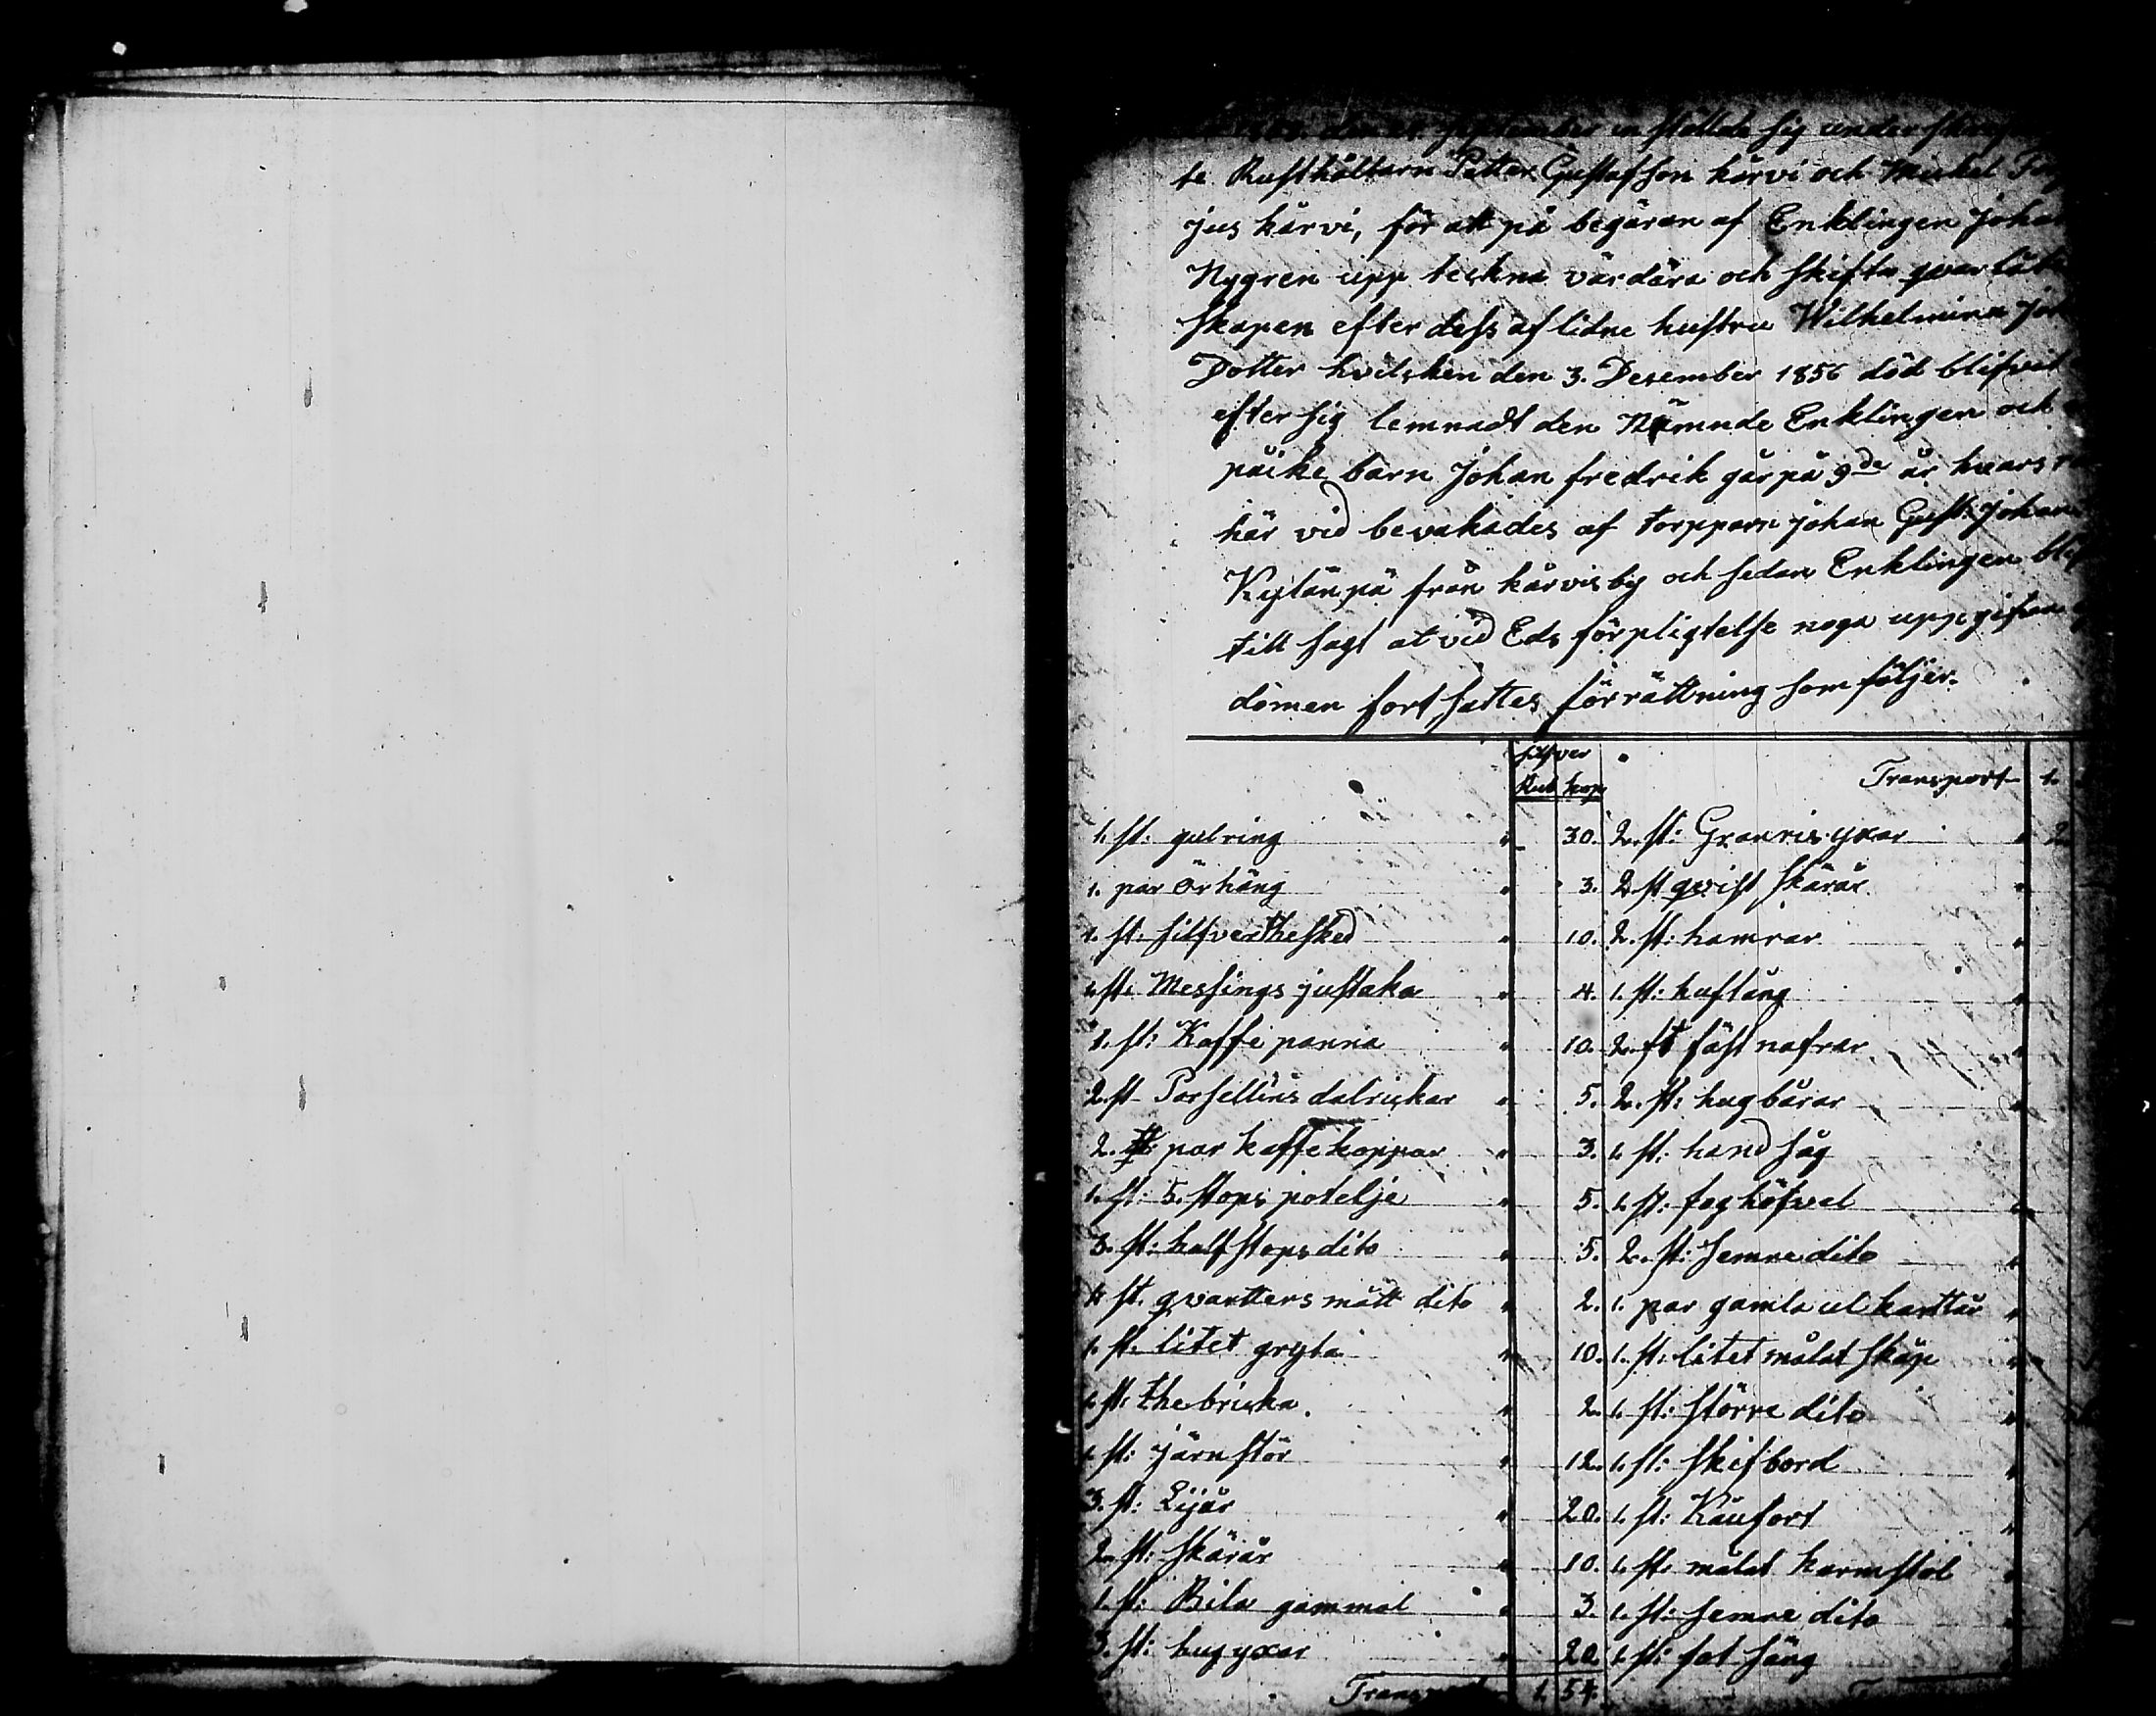 den September in stäldte sig under
te Rusthåltarn Petter Gustafson kårvi och Mickel
jus kårvi, för att på begäran af Enklingen Johan
Nygren upp teckna värdära och skifta qvarlåten
skapen efter dess aflidne hustru Wilhelmina
Dotter hvilcken den 3. Desember 1856 död blifvit
efter sig lemnadt den Nämnde Enklingen och
påike barn Johan fredrik går på 9de år hvars
här vid bevakades af torpparn johan Gust: Johans
Kylänpä från kårvis by och sedan Enklingen
till sagt at vid Eds förpligtelse noga uppgifva
dömen fort sattes förrättning som följer.
silfver
Rub kop
1. st: gulring " 30.
1. par Örhäng " 3.
1. st: silfver Thesked " 10.
st: Messings justaka " 4.
1. st: Kaffe panna " 10.
2. st Porsellins dalrickar " 5.
2. par kaffe koppar " 3.
1. st: 5. stops potelje " 5.
3. st: half stops dito " 5.
4 st. qvartters mått dito " 2.
1. st: litet gryta " 10.
1. st: the bricka. " 2.
1. st: järn stör " 12.
3. st: Lijår " 20.
2. st: skärår " 10.
1. st: Bila gammal " 3.
3. st: hug yxar " 20
Transport 1. 54.
Transport 1.
2. st: Granris yxar " 2
2 st qvist skärår "
2. st: hamrar "
1. st: huftång "
2. st fäst nafrar "
2. st: hug bårar "
1. st: hand såg
1. st: foghöfvel
2. st: Semre dito "
1. par gamla ul karttår "
1. st: litet målat skåp "
1. st: större dito "
1. st: skifbord "
1. st: Käufort "
1. st: målat karmstol
1. st: semre dito "
1. st: fat säng